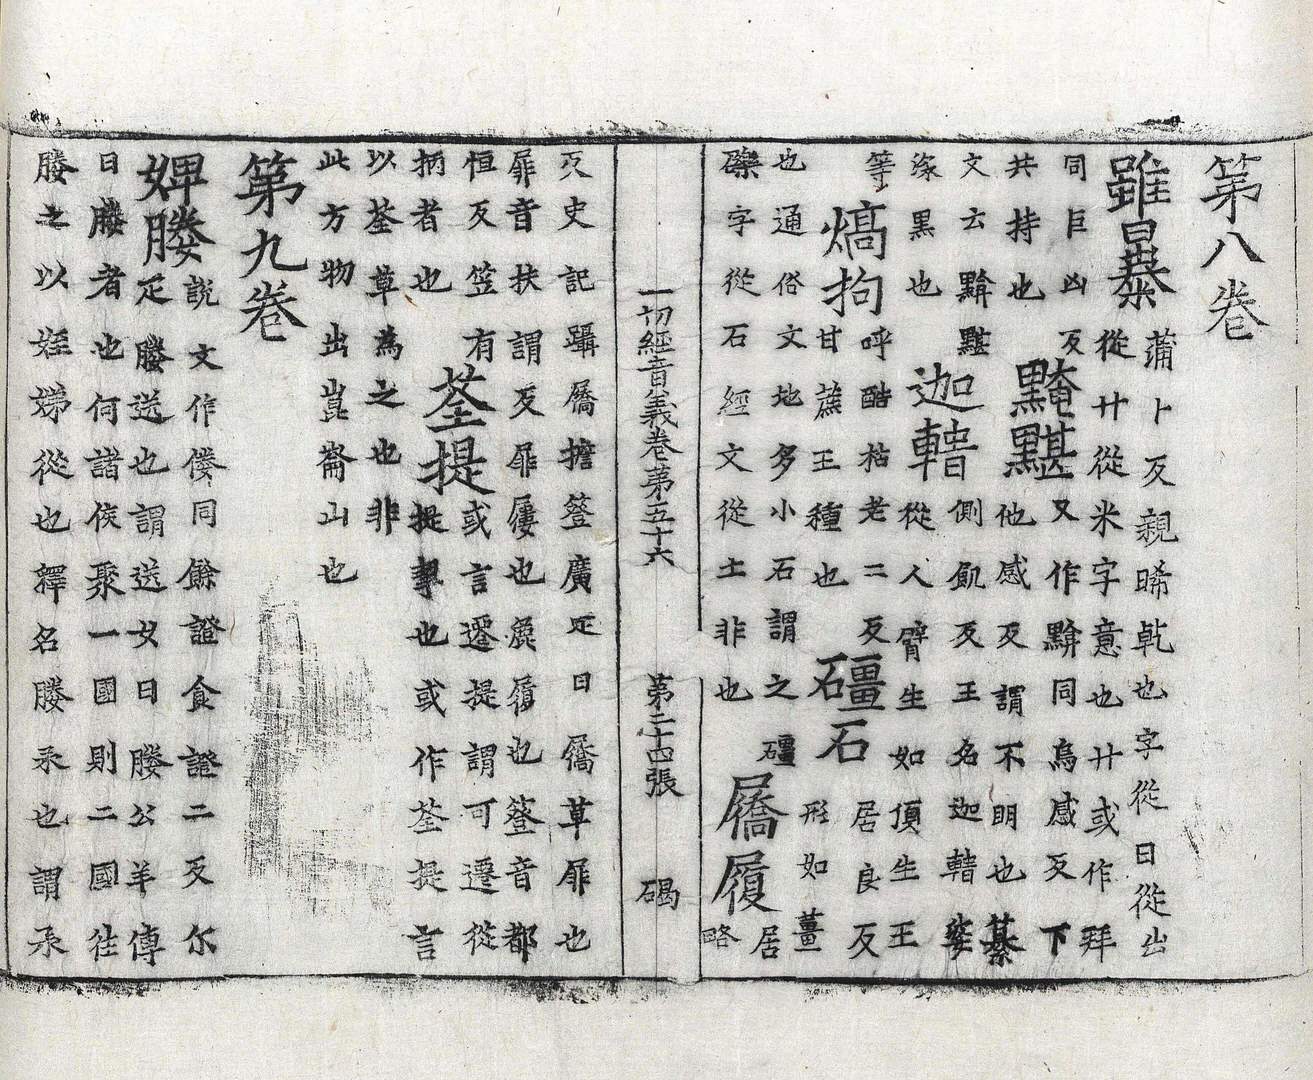 第八卷
雖暴
蒲卜反親晞乾也字從日從出
從廾從米字意也廾或作拜
同巨凶反
共持也
黤黮
又作黭同烏感反下
他感反謂不明也纂
文云黭黮
深黑也
迦𨎷
側飢反王名迦𨎷婆
從人臂生如頂生王
等
熇拘
呼酷枯老二反
甘蔗王種也
礓石
居良反
形如薑
也通俗文地多小石謂之礓
礫字從石經文從土非也
屩屨
居
略
一切經音義卷第五十六 第二十四張 碣
反史記躡屩擔簦廣疋曰屩草屝也
屝音扶謂反屝屨也麁履也簦音都
恒反笠有
柄者也
荃提
或言遷提謂可遷從
提挈也或作荃提言
以荃草為之也非
此方物出崑崙山也
第九卷
婢媵
說文作㑞同餘證食證二反尔
疋媵送也謂送女曰媵公羊傳
曰媵者也何諸侯聚一國則二國往
媵之以姪娣從也釋名媵承也謂承